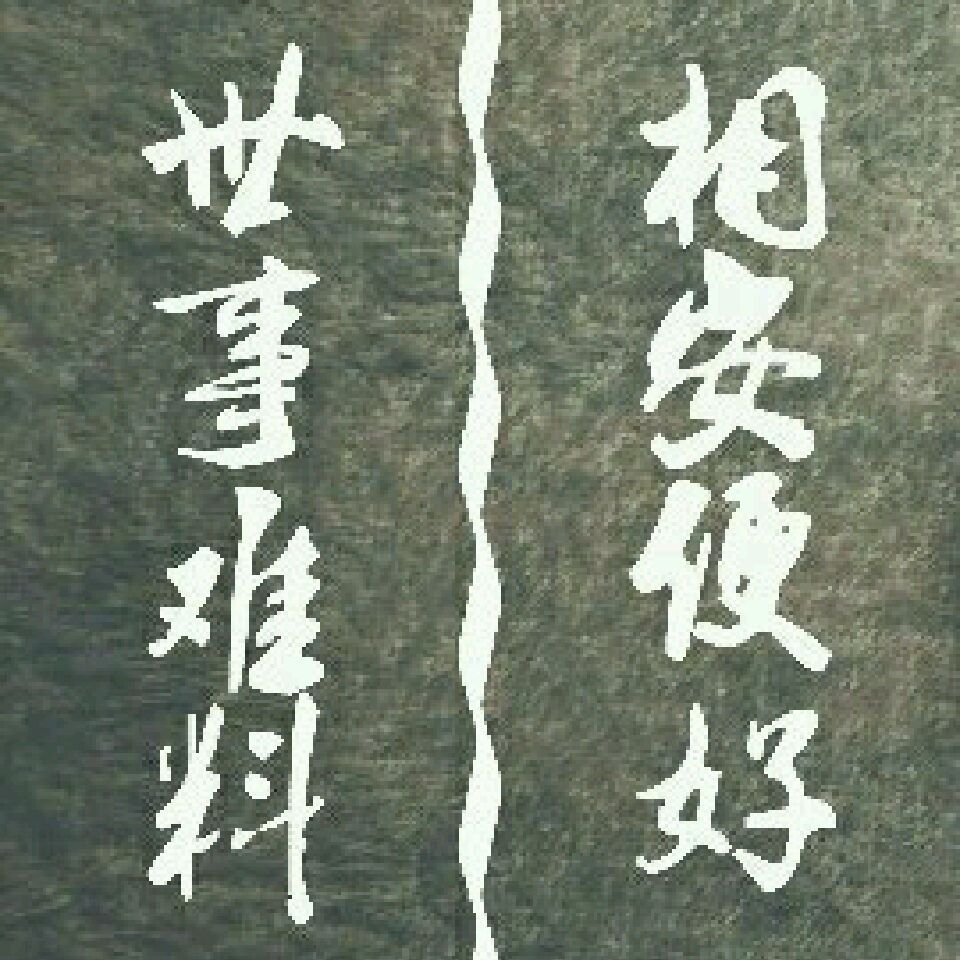 世事难料
相安便好